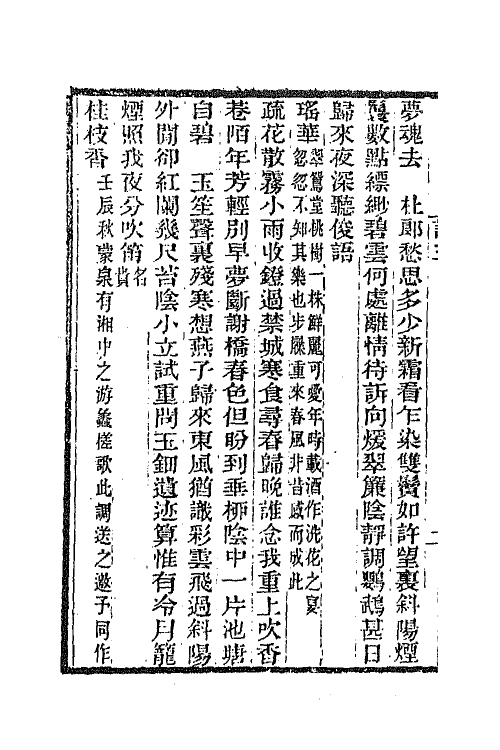 夢魂去　杜郞愁思多少新霜看乍染雙鬢如許望裏斜陽煙
數點縹緲碧雲何處離情待訴向煖翠簾陰靜調鸚鵡甚日
歸來夜深聽俊語
瑤華翠鴛堂桃樹一株鮮麗可愛年時載酒作洗花之宴
忽忽不知其樂也步屧重來春風非昔感而成此
疏花散霧小雨收鐙過禁城寒食尋春歸晚誰念我重上吹香
巷陌年芳輕別早夢斷謝橋春色但盼到垂柳陰中一片池塘
自碧　玉笙聲裏殘寒想燕子歸來東風猶識彩雲飛過斜陽
外閒卻紅闌幾尺苔陰小立試重問玉鈿遺迹算惟有冷月籠
煙照我夜分吹笛
桂枝香壬辰秋蒙泉有湘中之游蠡槎歌此調送之邀予同作